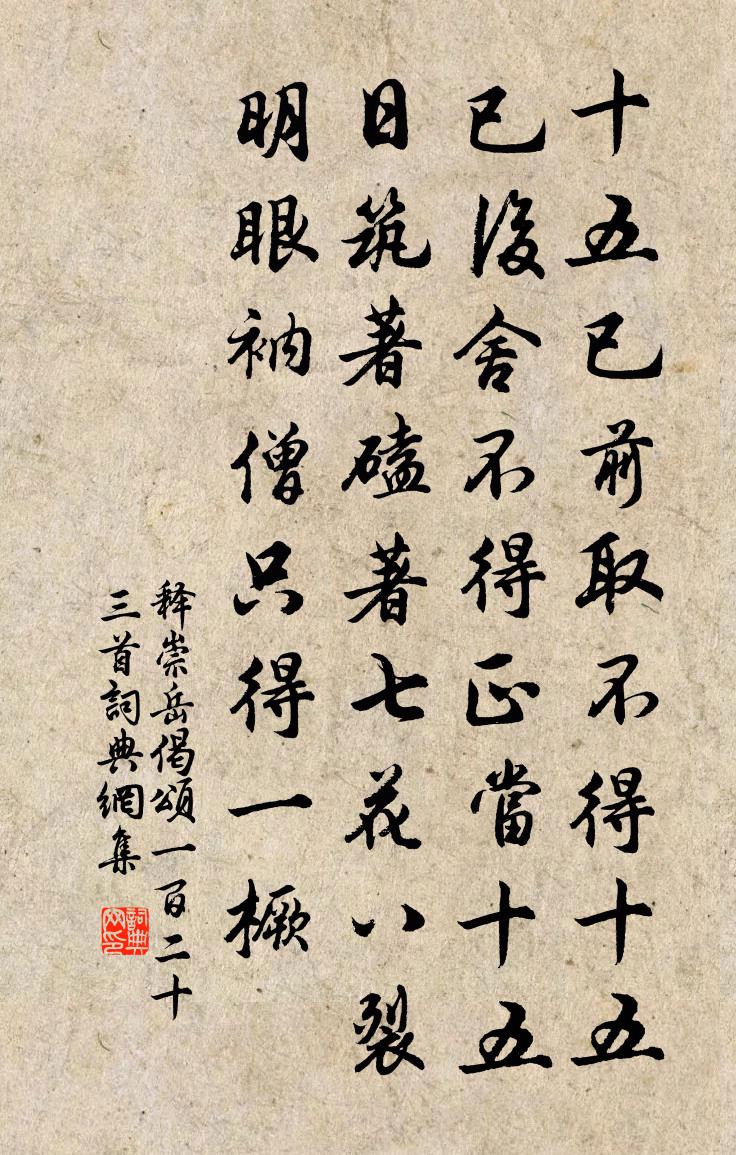 十五已前取不得十五
已後舍不得正當十五
日筑著磕著七花八裂
明眼衲僧只得一橛
释崇岳偈頌一百二十
三首詞典網集
詞典网印